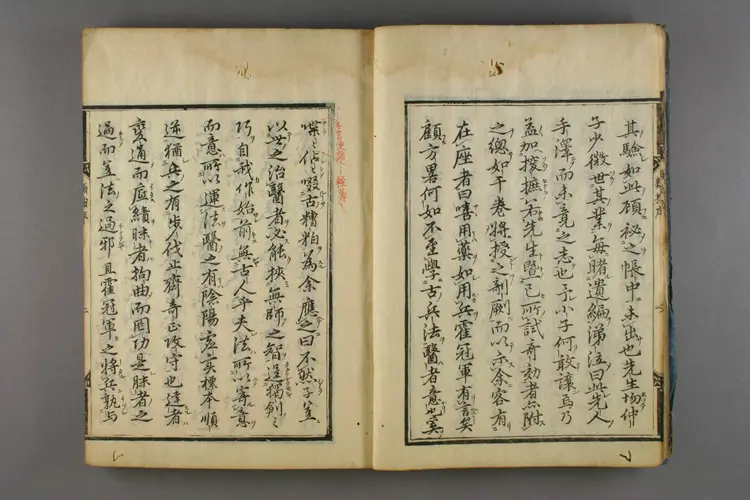 其驗如此顧祕之帳中未出也先生切仲
子少微世其業每睹遺編涕泣曰此先人
手澤而未竟之志也予小子何敢讓焉乃
益加按摭若先生曁己所試奇効者附
之總如干卷將授之剞劂而以示余客有
在座者曰嘻用藥如用兵霍冠軍有言矣
顧方畧何如不至學古兵法醫者意也奚
喋喋佔佔啜古糟粕爲余應之曰不然子豈
以世之治醫者必能挾無師之智逞獨創之
巧自我作始前無古人乎夫法所以寄意
而意所以運法醫之有陰陽虛實標本順
逆猶兵之有步伐止齊奇正攻守也達者
變通而應績昧者拘曲而罔功是昧者之
過而豈法之過邪且霍冠軍之將兵孰與